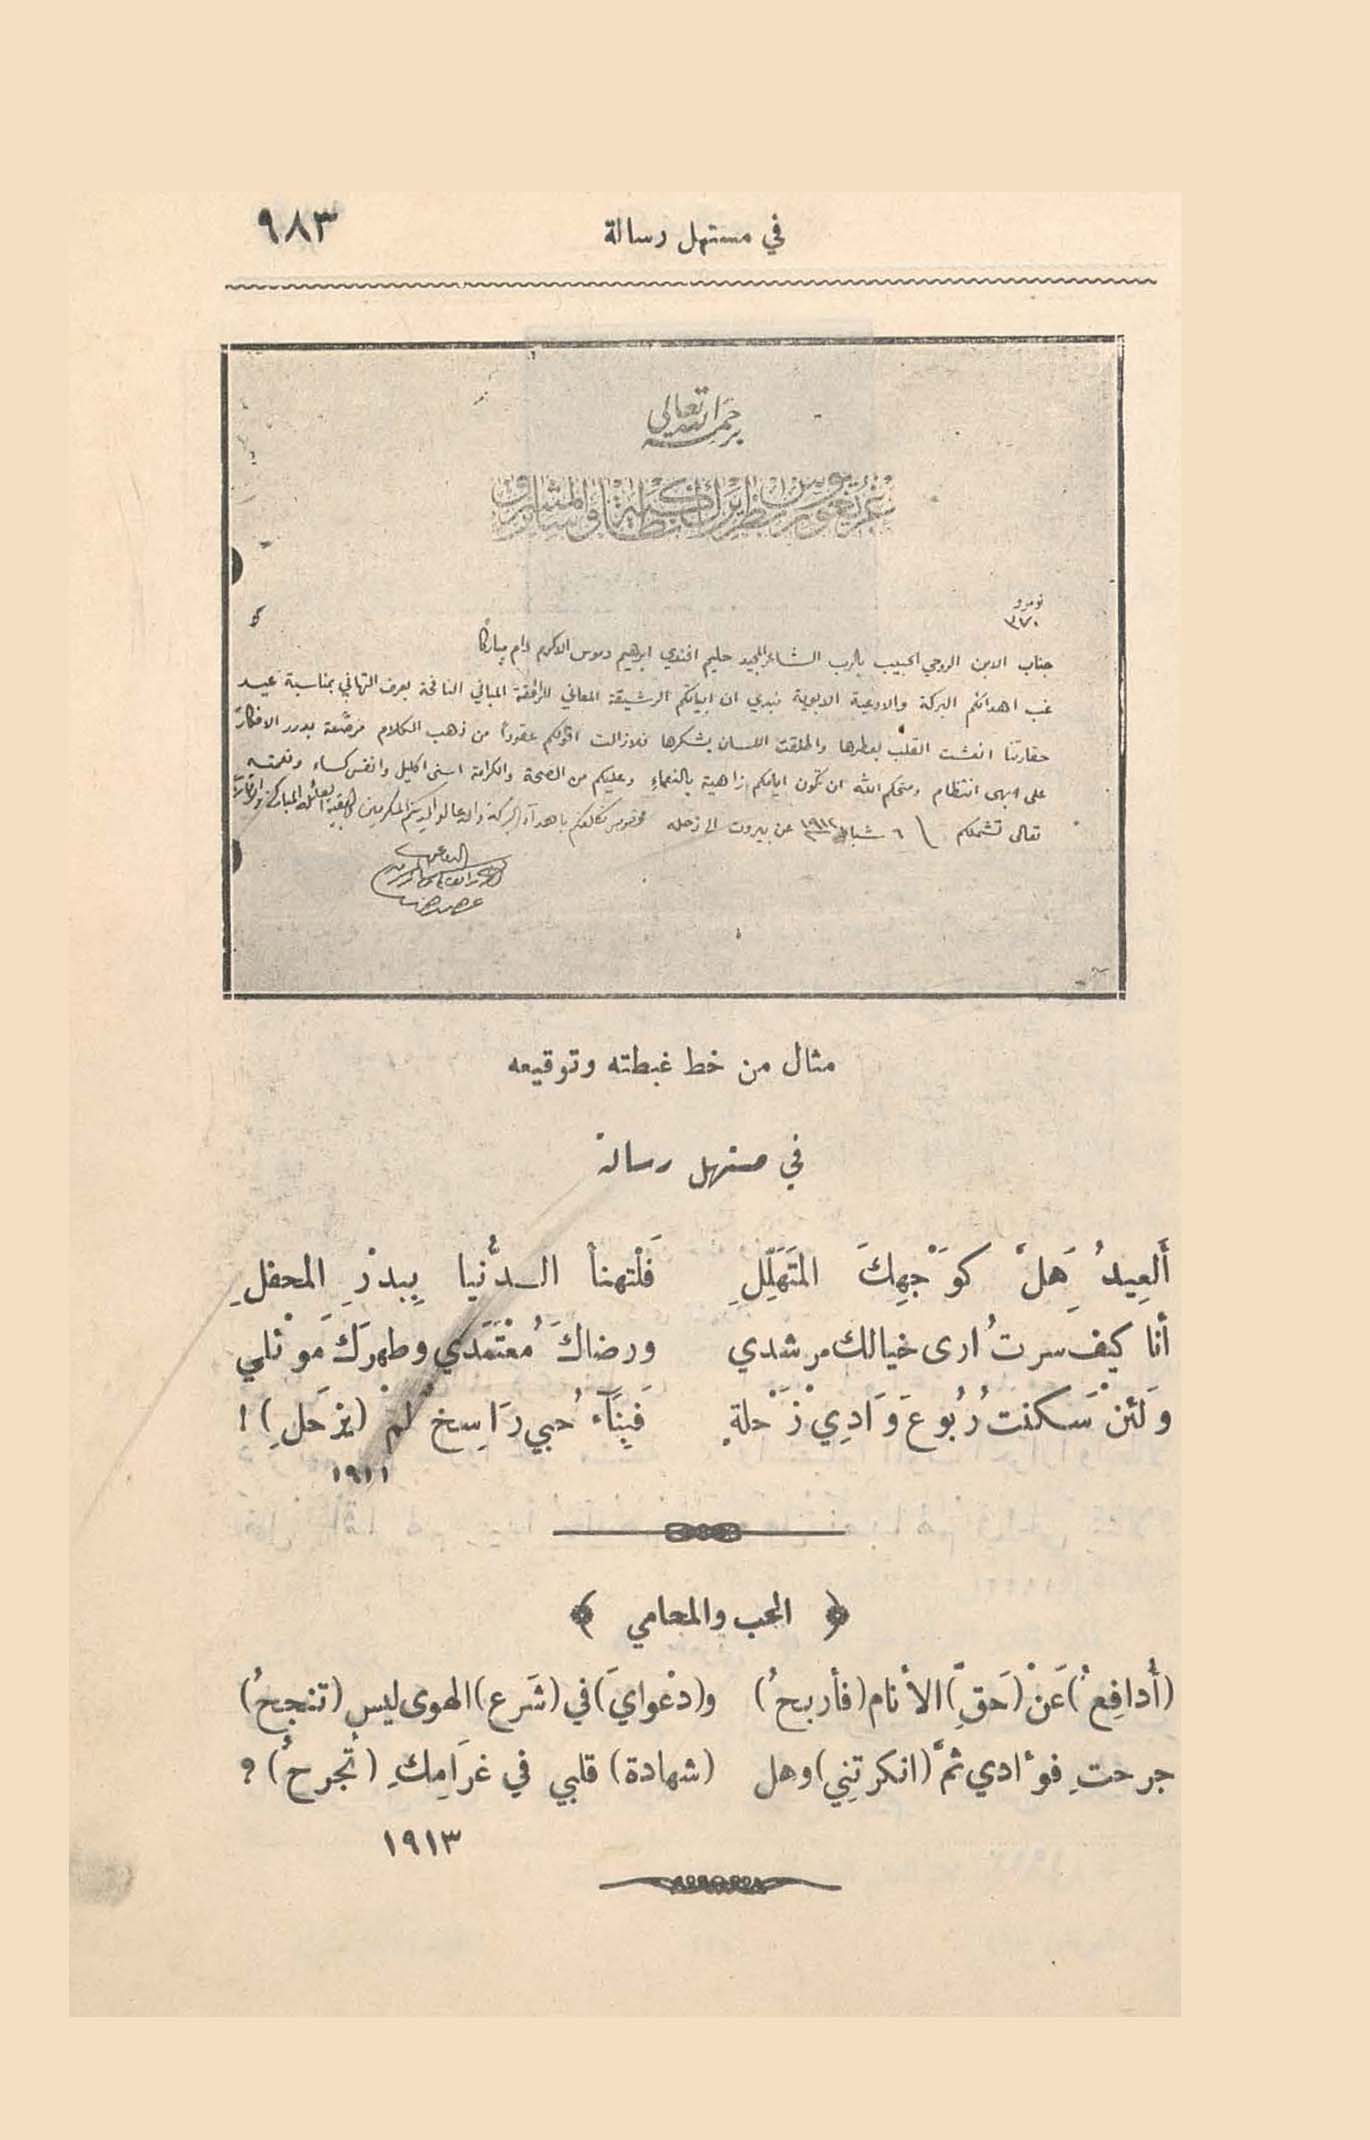 في مستهل رسالة
٩٨٣
برحمة الله تعالى
غريغوريوس بطريرك انطاكية وسائر المشرق
نومرو
٣٧٠
جناب الابن الروحي الحبيب بالرب الشاعر المجيد حليم افندي ابرهيم دموس الاكرم دام مباركًا
غب اهدائكم البركة والادعية الابوية نبدي ان ابياتكم الرشيقة المعاني المباني النافحة بعرف التهاني بمناسبة عيد
حقارتنا انعشت القلب بعطرها واطلقت اللسان بشكرها فلازالت اقوالكم عقوداً من ذهب الكلام مرصَّعة بدرر الافكار
على ابهى انتظام ومتعكم الله ان تكون ايامكم زاهية بالنعماء وعليكم من الصحة والكرامة اسنى اكليل وانفس كساء ونعمته
تعالى تشملكم ٦ شباط ١٩١٢ عن بيروت الى زحله
مثال من خط غبطته وتوقيعه
في مستهل رسالة
أَلعِيدُ هَلْ كَوَجْهِكَ المتَهَلِّلِ فَلْتهنأ الدُّنيا بِبدرِ المحفلِ
أنا كيفَ سرتُ ارى خيالك مرشدي ورضاكَ مُعْتَمَدي وطهرَكَ موئلي
وَلَئنْ سَكنت رُبُوعَ وَادِيْ زَحْلةٍ فَبِنَآءُ حُبي رَاسِخٌ لمْ (يزحَلِ) !
١٩١١
﴿ الحب والمحامي ﴾
(أُدافِعُ) عَنْ (حَقِّ) الأنام (فأربحُ) و(دعْوايَ) في (شَرع) الهوى ليس (تنجحُ)
جرحتِ فوءادي ثمَّ (انكرتِني) وهل (شهادة) قلبي في غرَامِكِ (تُجرحُ) ؟
١٩١٣